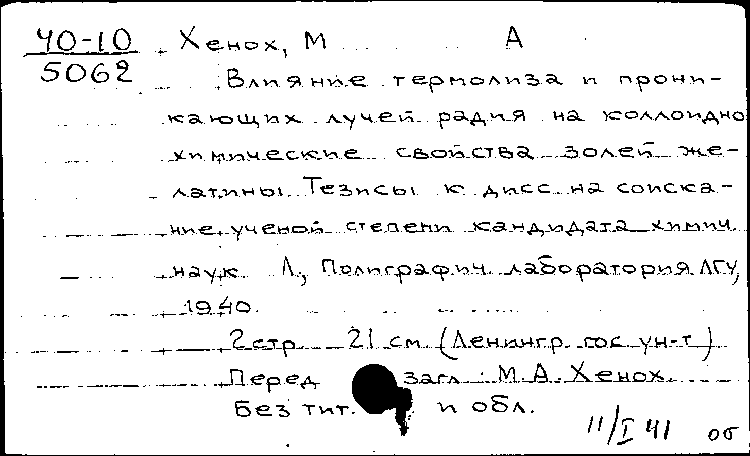 40-10 Хенох, М А
5062
Влияние термолиза и прони-
кающих лучей радия на коллоидно
химические свойства золей же-
латины Тезисы к дисс на соиска-
ние ученой степени кандидата химич
наук Л, Полиграфич лаборатория ЛГУ,
1940
2 стр 21 см (Ленингр гос ун-т)
Перед загл: М. А. Хенох.
Без тит. и обл.
11/I 41 об